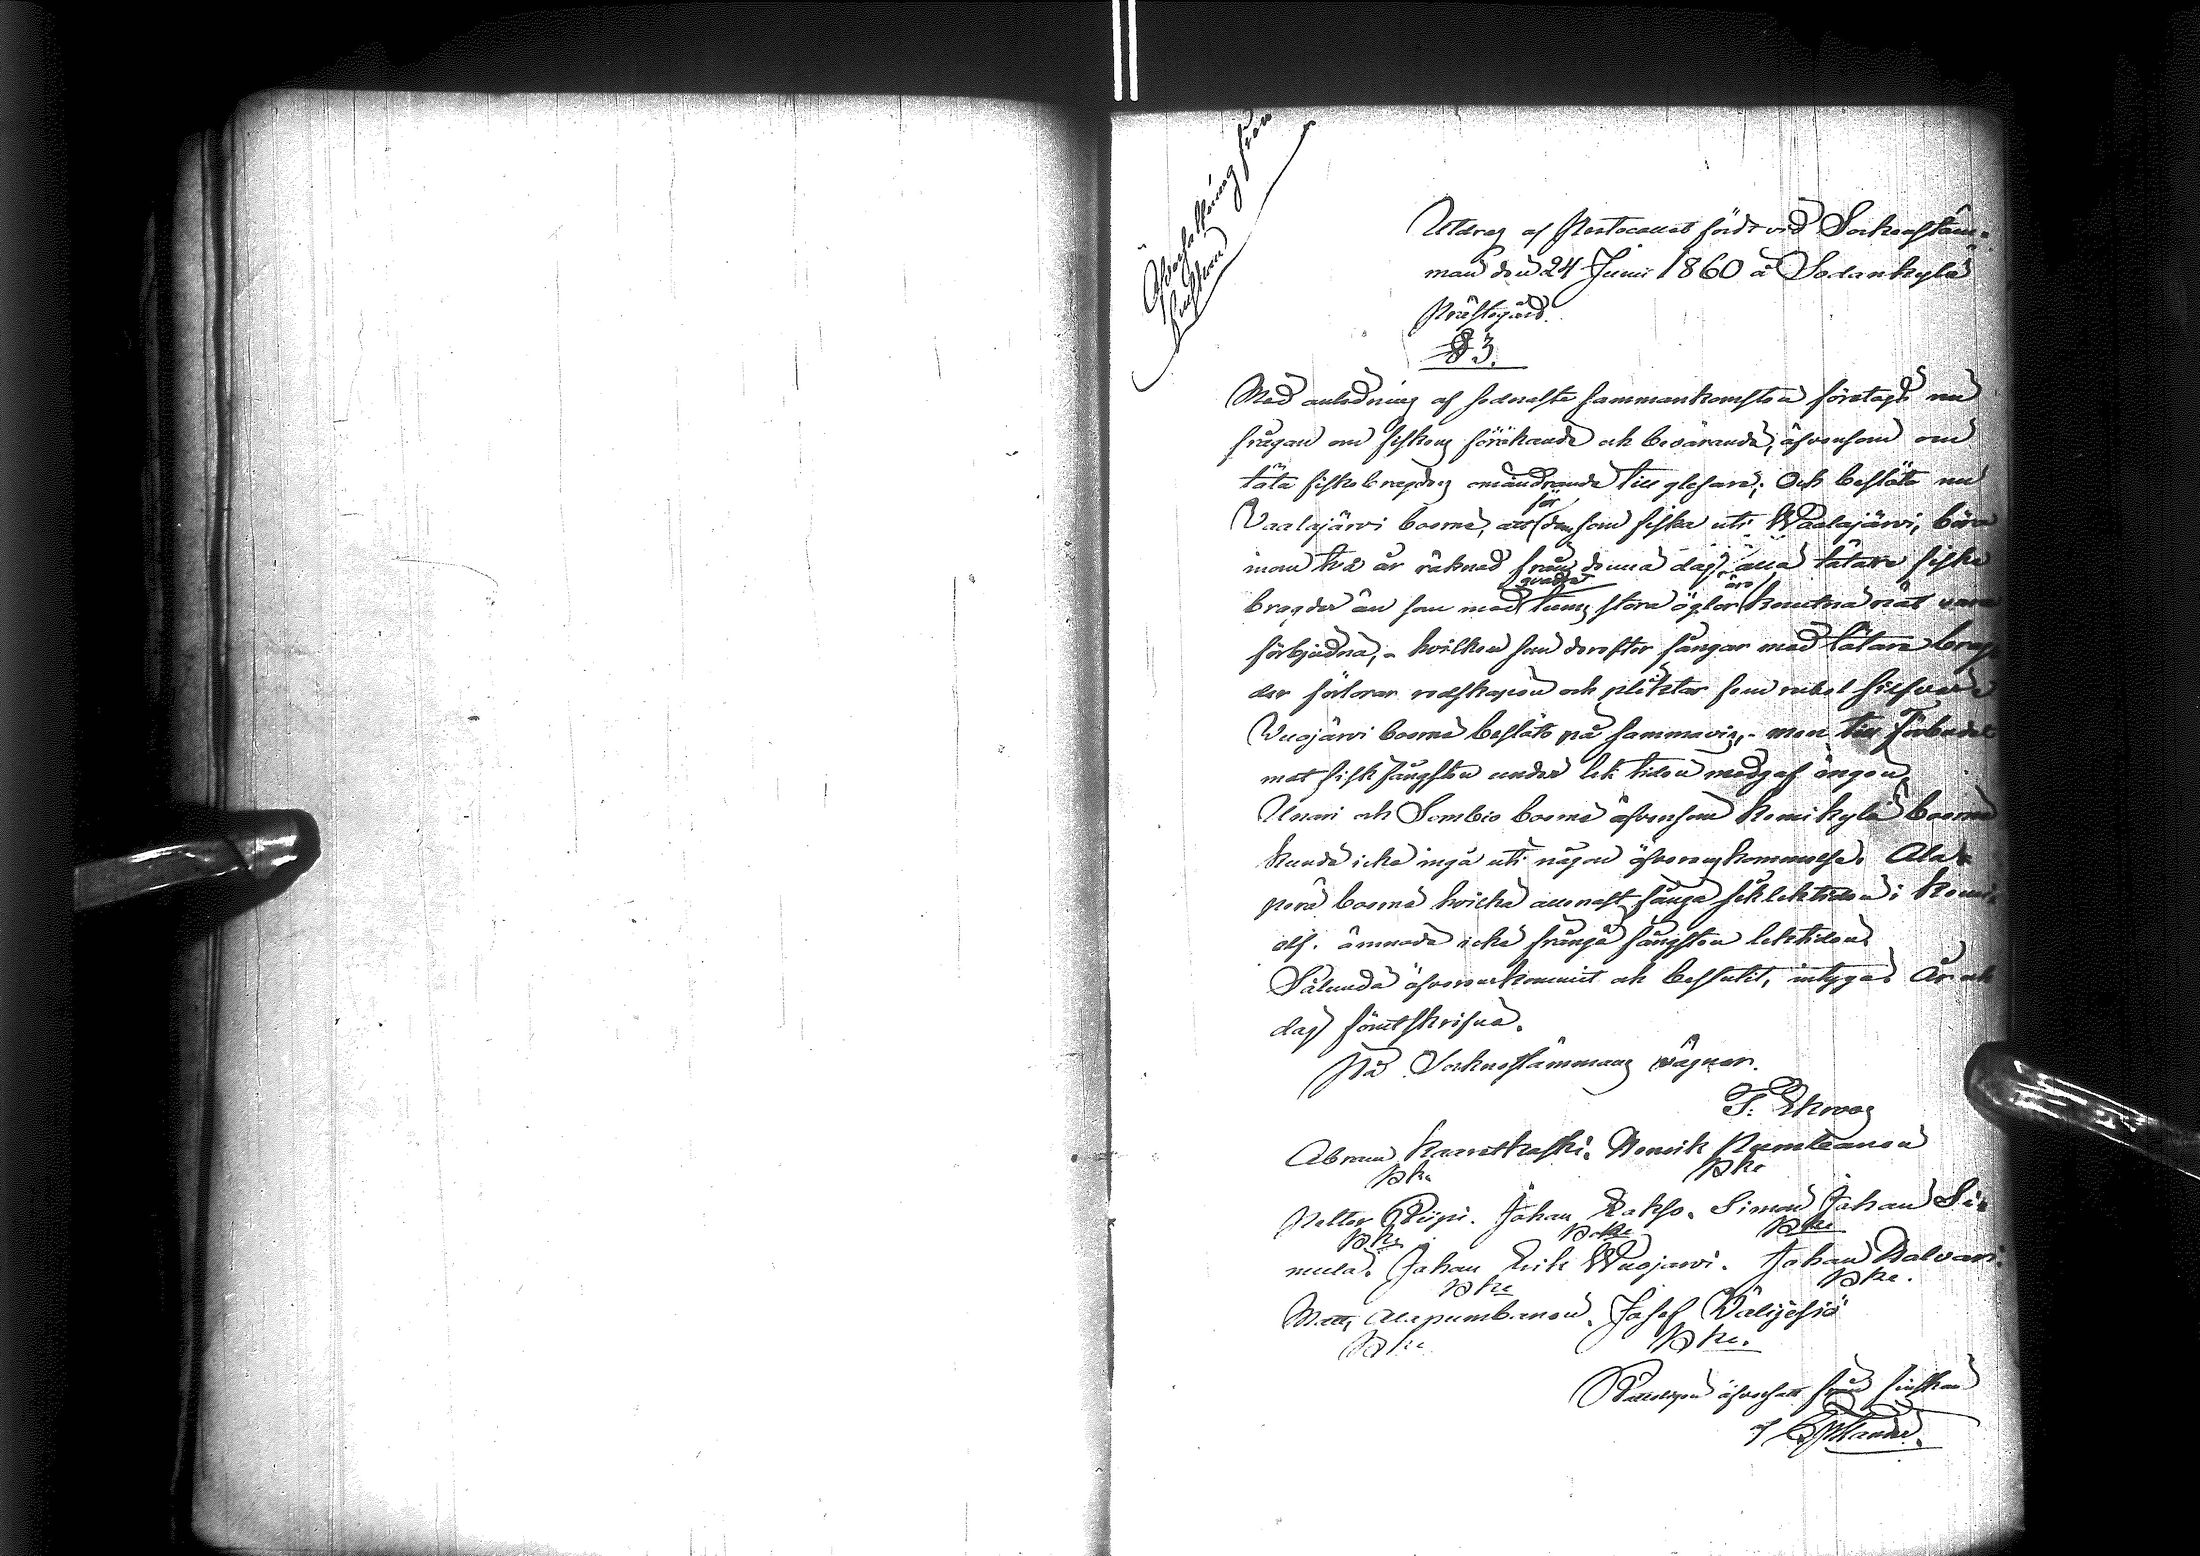 Öfversättning från
finskan
Utdrag af Protocollet fördt vid Sockenstäm-
man den 24 Junii 1860 å Sodankylä
Prästegård.
§ 3.
Med anledning af sednaste sammankomsten företogs nu
frågan om fiskens förökande och bevarande, äfvensom om
täta fiskebragders omändrande till glesare; Och beslöto nu
Vaalajärvi boerne, att för dem som fiska uti Waalajärvi, böra
inom två år räknad från denna dag, alla tätare fiske
bragder än som med qvarter tums stora öglor äro knutna nät vara
förbjudna, - hvilken som derefter fångar med tätare brag-
der förlorar redskapen och pliktar fem rubel silfver
Vuojärvi boerne beslöto på samma vis, - men till Förbudet
mot fisk fångsten under lek tiden medgaf ingen.
Unari och Sombio boerne äfvensom Kemikylä boerne
kunde icke ingå uti någon öfverenskommelse. Ala-
perä boerne hvilka allenast fånga sik lektiden i Kemi
elf. ämnade icke frångå fångsten lektiden.
Sålunda öfverenskommit och beslutit, intygas År och
dag förutskrifne.
På Sockenstämmans vägnar.
F. Ekroos
Abram Henrik
Petter Piipi. Johan Simon Johan Si-
mula. Johan Erik Wuojärvi. Johan
Matts Alapumbanen. Josef
öfversatt från finskan
af